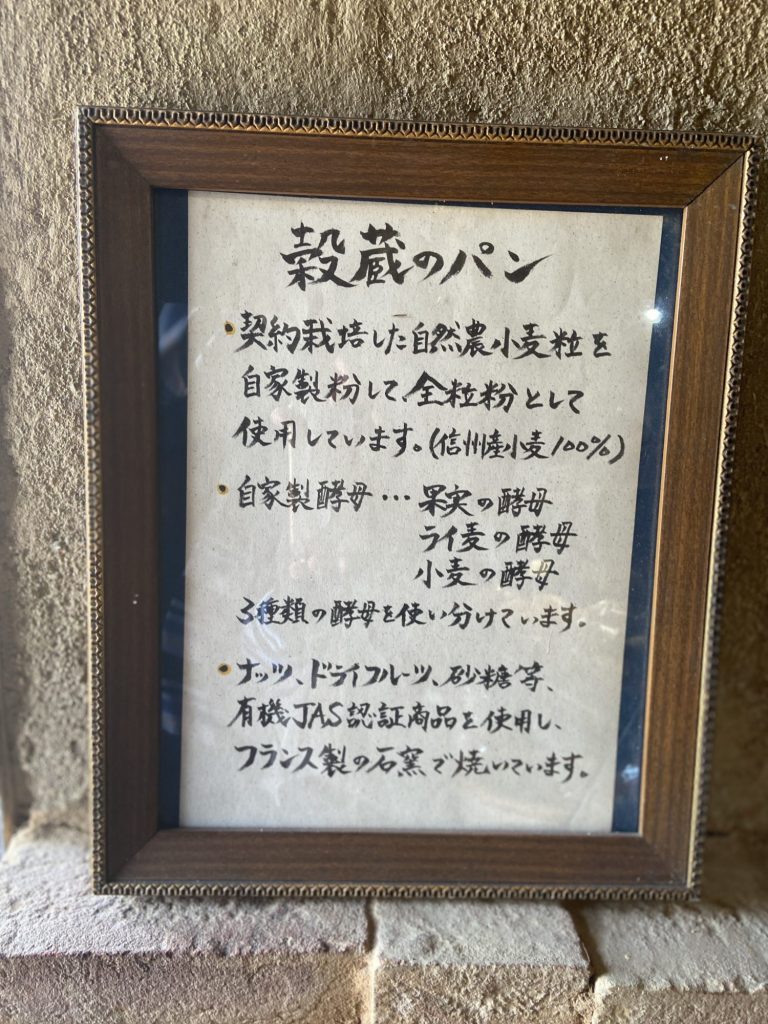 穀蔵のパン
• 契約栽培した自然農小麦粒を
自家製粉して、全粒粉として
使用しています。(信州産小麦100%)
• 自家製酵母… 果実の酵母
ライ麦の酵母
小麦の酵母
3種類の酵母を使い分けています。
• ナッツ、ドライフルーツ、砂糖等、
有機JAS認証商品を使用し、
フランス製の石窯で焼いています。